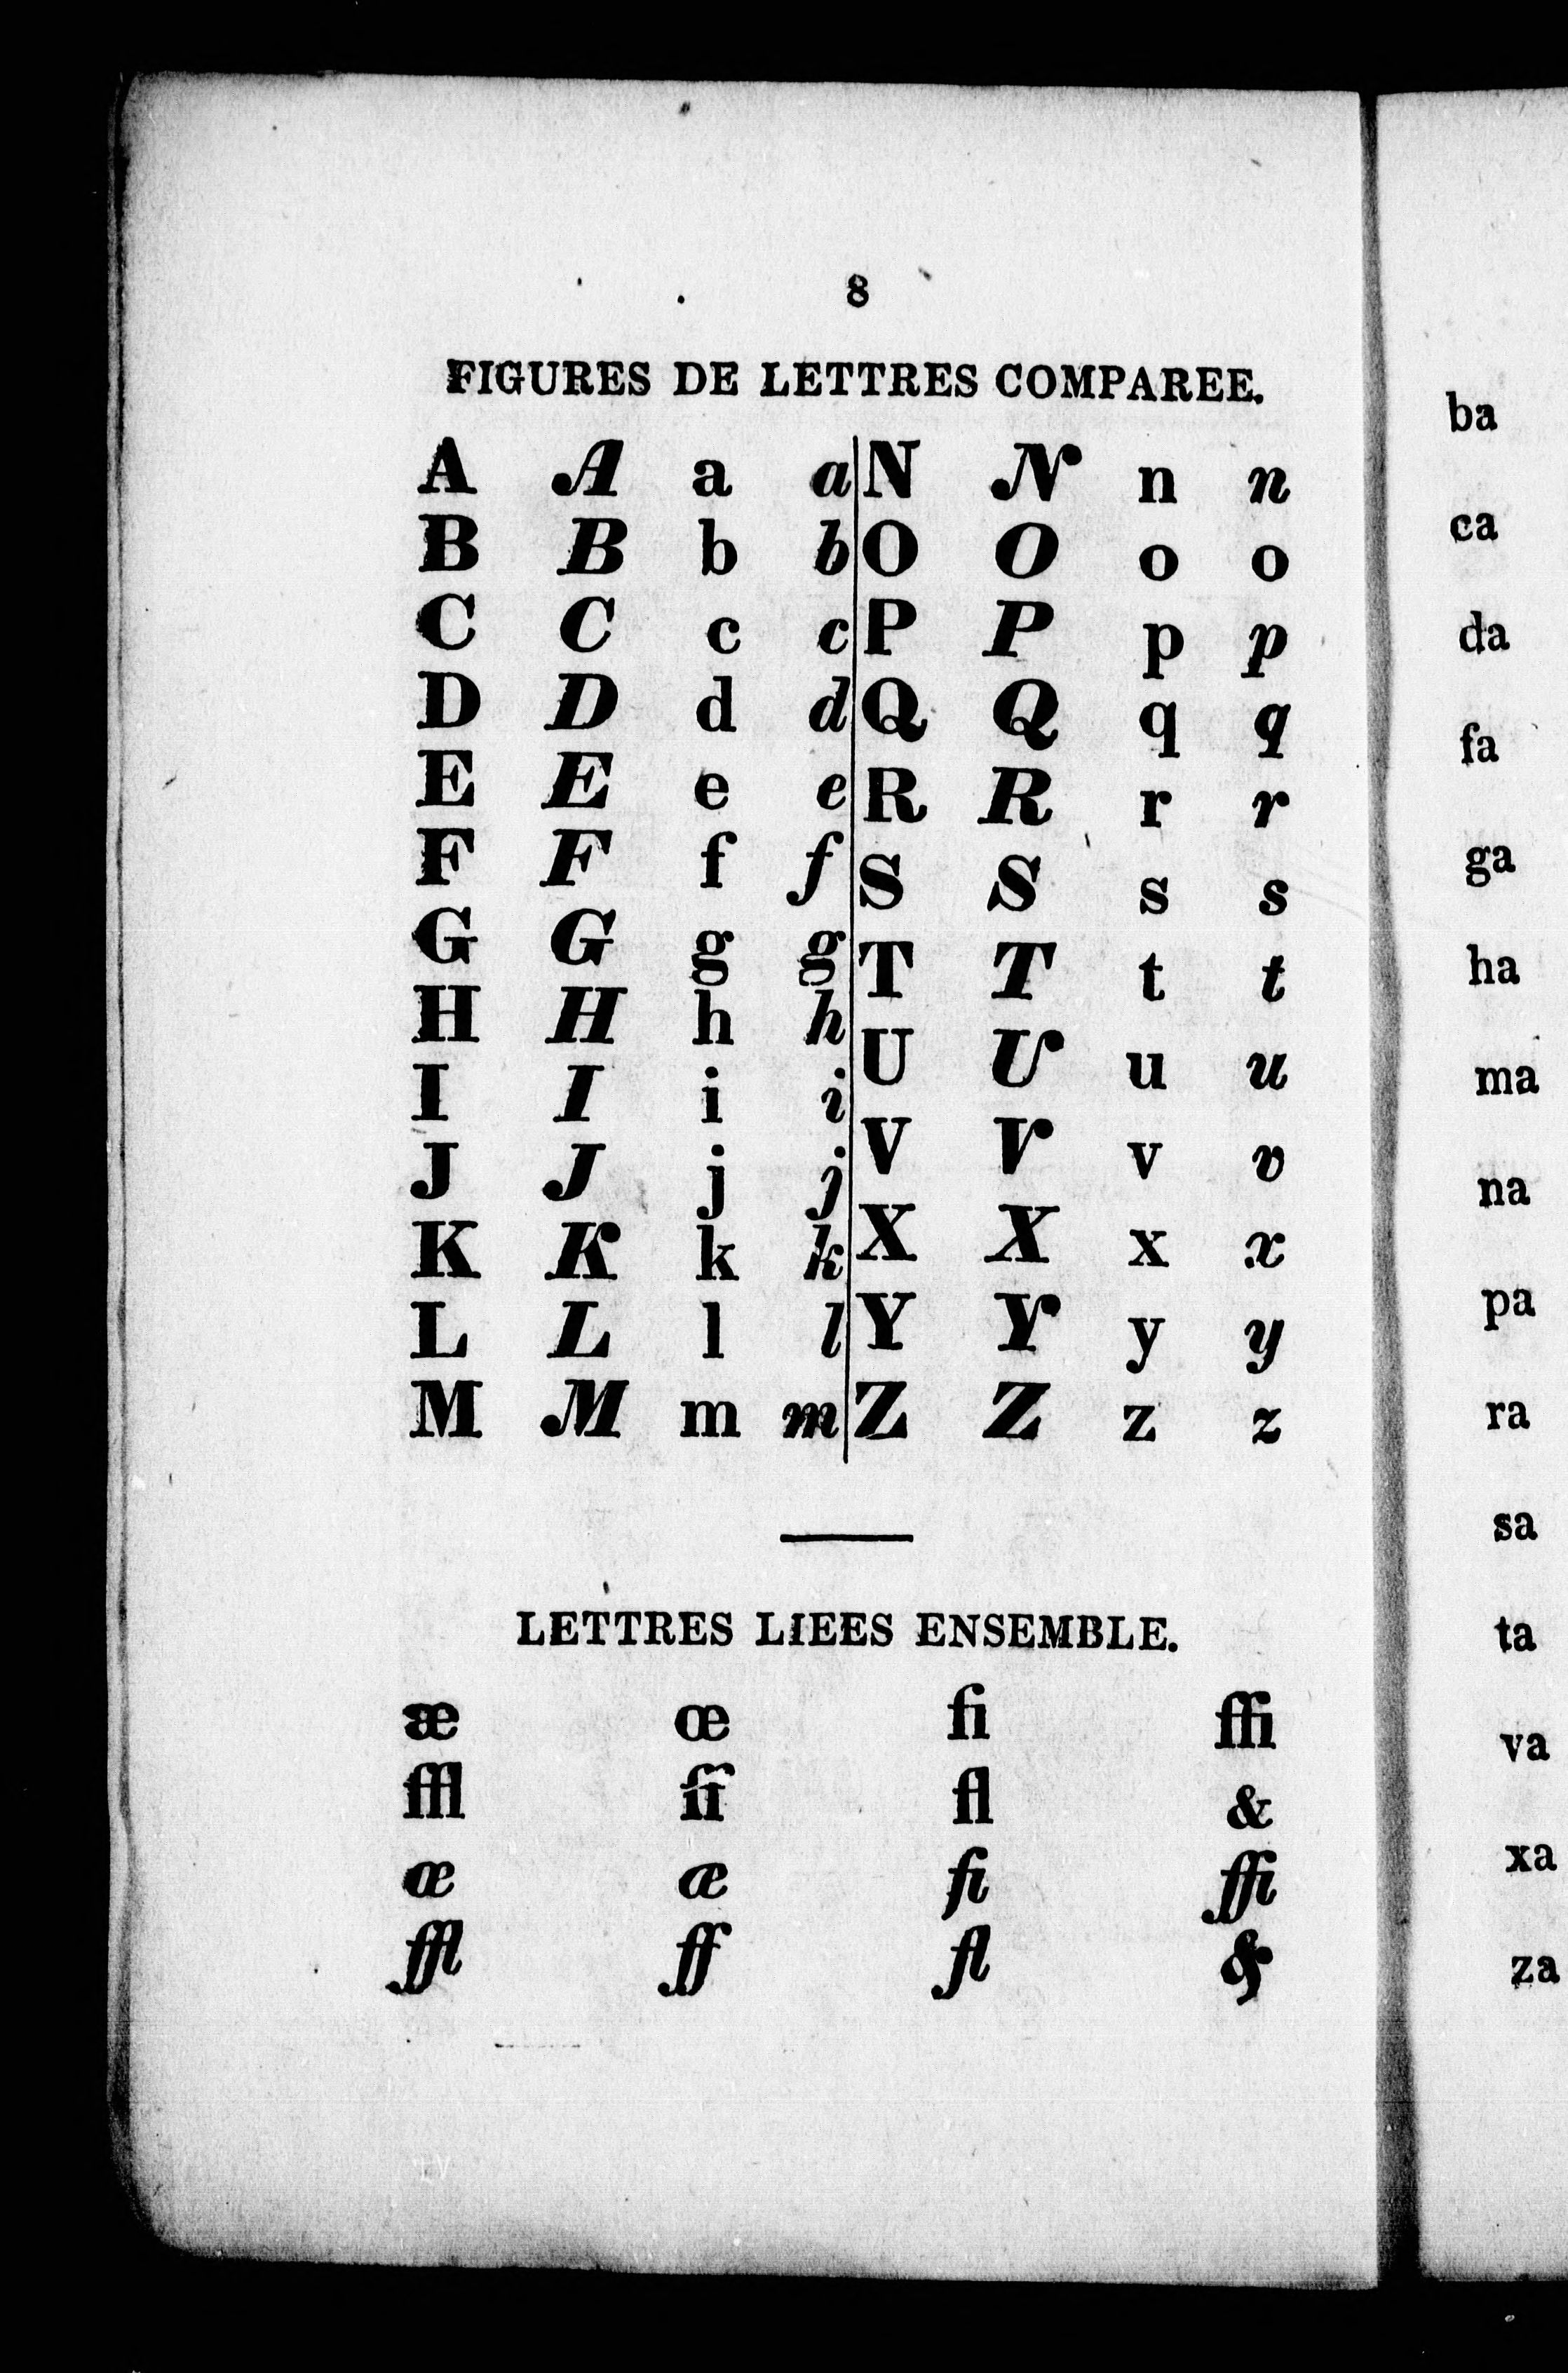 8
FIGURES DE LETTRES COMPAREE.
A A a a N N n n
B B b b O O o o
C C c c P P p p
D D d d Q Q q q
E E e e R R r r
F F f f S S s s
G G g g T T t t
H H h h U U u u
I I i i V V v v
J J j j X X x x
K K k k Y Y y y
L L l l Z Z z z
M M m m
LETTRES LIEES ENSEMBLE.
æ œ fi ffi
ffl ff fl &
œ æ fi ffi
ffl ff fl &
ba
ca
da
fa
ga
ha
ma
na
pa
ra
sa
ta
va
xa
za